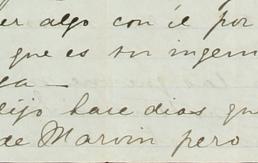 er algo con él por
que es su ingem
ga—
dijo hace dias que
de Marvin pero